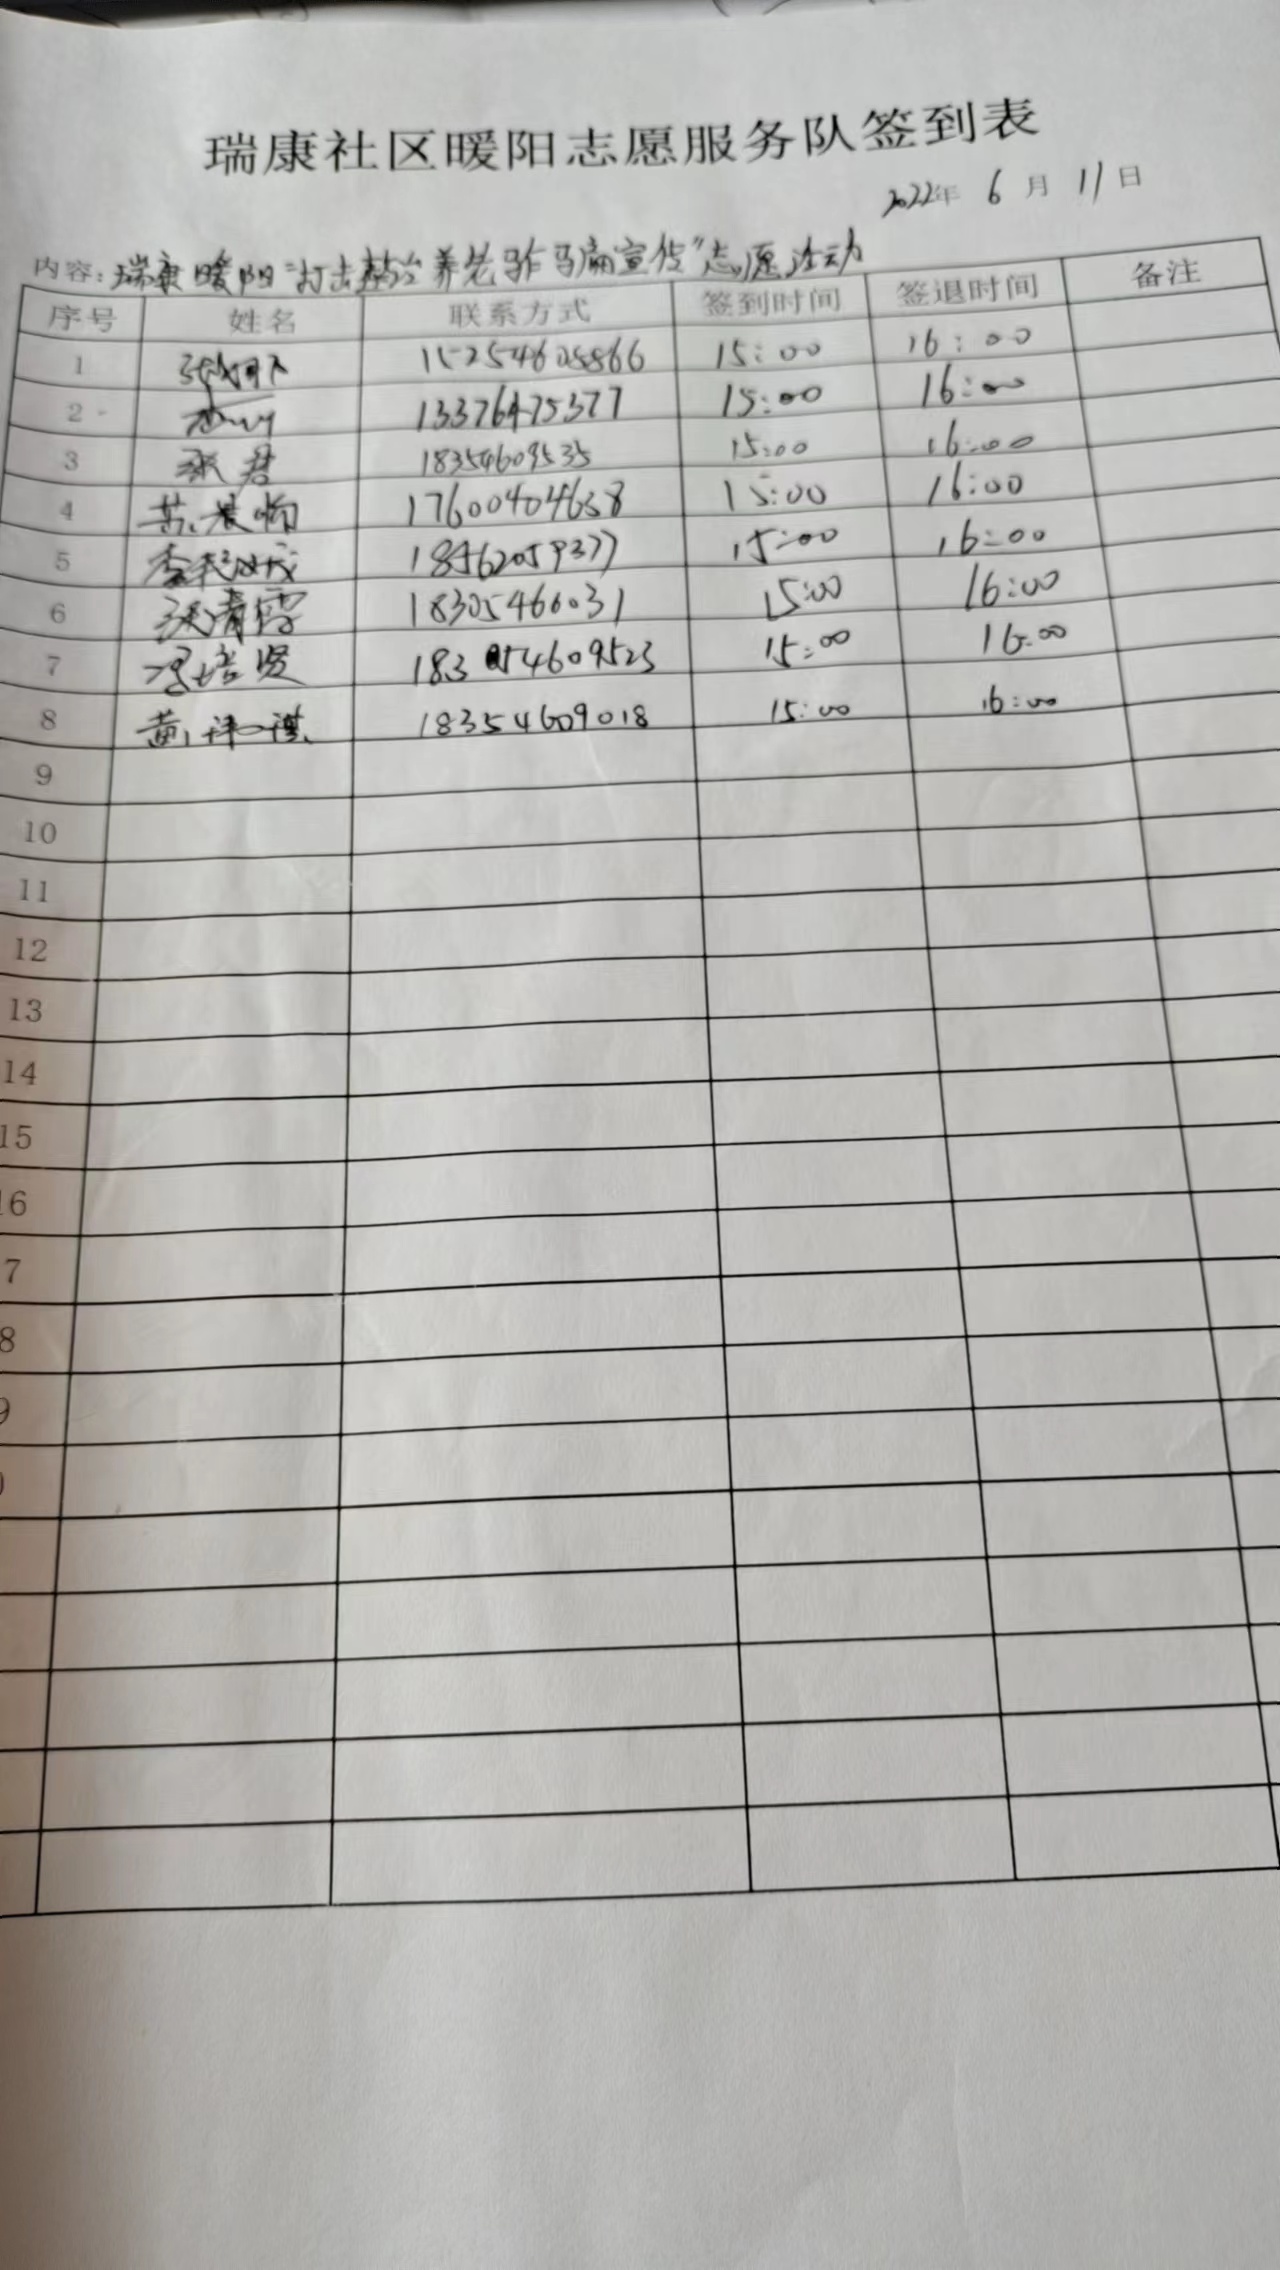 瑞康社区暖阳志愿服务队签到表
2022年 6 月 11 日
内容：瑞康暖阳“打击整治养老诈骗宣传”志愿活动
序号 姓名 联系方式 签到时间 签退时间 备注
1 15:00 16:00
2 13376475377 15:00 16:00
3 张君 18354609535 15:00 16:00
4 17600404638 15:00 16:00
5 18562059377 15:00 16:00
6 张清霞 18305466031 15:00 16:00
7 冯培贤 15:00 16:00
8 18354609018 15:00 16:00
9
10
11
12
13
14
15
16
7
8
9